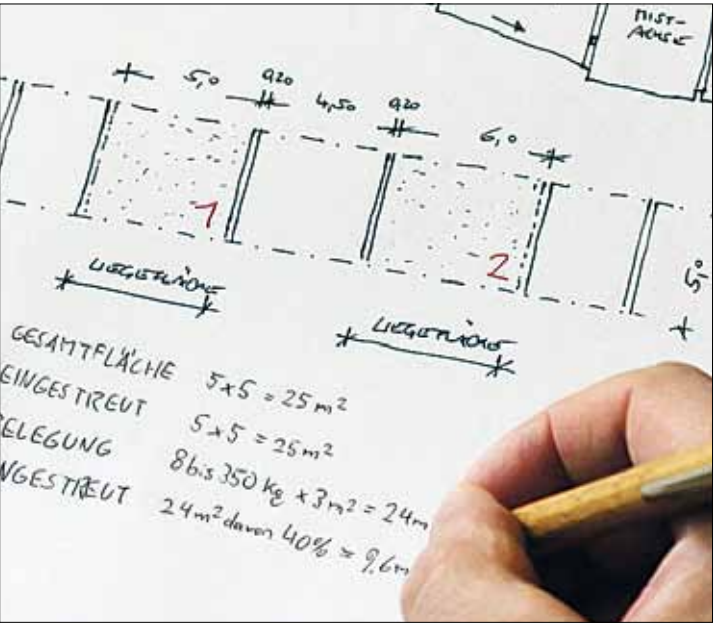 MIST-
ACHSE
5,0 0,20 4,50 0,20 6,0
1
2
5,0
LIEGEFLÄCHE
LIEGEFLÄCHE
GESAMTFLÄCHE 5x5 = 25m²
EINGESTREUT 5x5 = 25m²
ELEGUNG 8 bis 350 kg x 3m² = 24m
NGESTREUT 24m² davon 40% = 9,6m